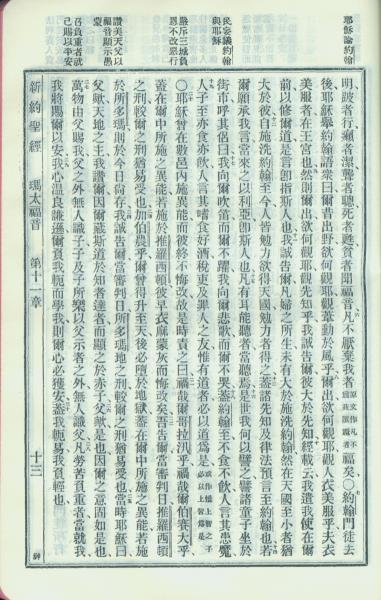 耶穌論約翰
民妄議約翰
與耶穌
嚴斥三城負
恩不改惡行
讚美天父以
福音顯示愚
蒙
召負重者就
己賜以平安
明跛者行癩者潔聾者聽死者甦貧者聞福音凡不厭棄我者原文作凡不爲我躓蹶者福矣〇約翰門徒去
後耶穌舉約翰語衆曰爾昔出野欲何觀耶觀葦動於風乎爾出欲何觀耶觀人衣美服乎夫衣
美服者在王宮也然則爾出欲何觀耶觀先知乎我誠告爾彼大於先知經載云我遣我使在爾
前以修爾道是言卽指斯人也我誠告爾凡婦之所生未有大於施洗約翰然在天國至小者猶
大於彼自施洗約翰至今人皆勉力欲得天國勉力者得之蓋諸先知及律法預言至約翰也若
爾願承我言當來之以利亞卽斯人也凡有耳能聽者當聽焉是世我何以譬之譬諸童子坐於
街市呼其侶曰我向爾吹笛而爾不躍我向爾悲歌而爾不哭蓋約翰至不食不飲人言其患魔
人子至亦食亦飲人言其嗜食好酒稅吏及罪人之友惟有道者必以道爲是
〇耶穌曾在數邑內施異能而彼終不悔改故是時責之曰禍哉爾哥拉汛乎禍哉爾伯賽大乎
蓋在爾中所施之異能若施於推羅西頓彼早衣麻蒙灰而悔改矣吾告爾當審判日推羅西頓
之刑較爾之刑猶易受也加伯農乎爾曾得升至天後必墮於地獄蓋在爾中所施之異能若施
於所多瑪則於今日尙存我誠告爾當審判日所多瑪地之刑較爾之刑猶易受也當時耶穌曰
父歟天地之主我讚爾因爾藏斯道於知者達者而顯之於赤子父歟是也因爾之意固如是也
萬物由父賜我父之外無人識子子及子所樂以父示者之外無人識父凡勞苦負重者當就我
我將賜爾以安我心溫良謙遜爾負我軛而學我則爾心必獲安蓋我軛易我負輕也
新約聖經 瑪太福音 第十一章 十三